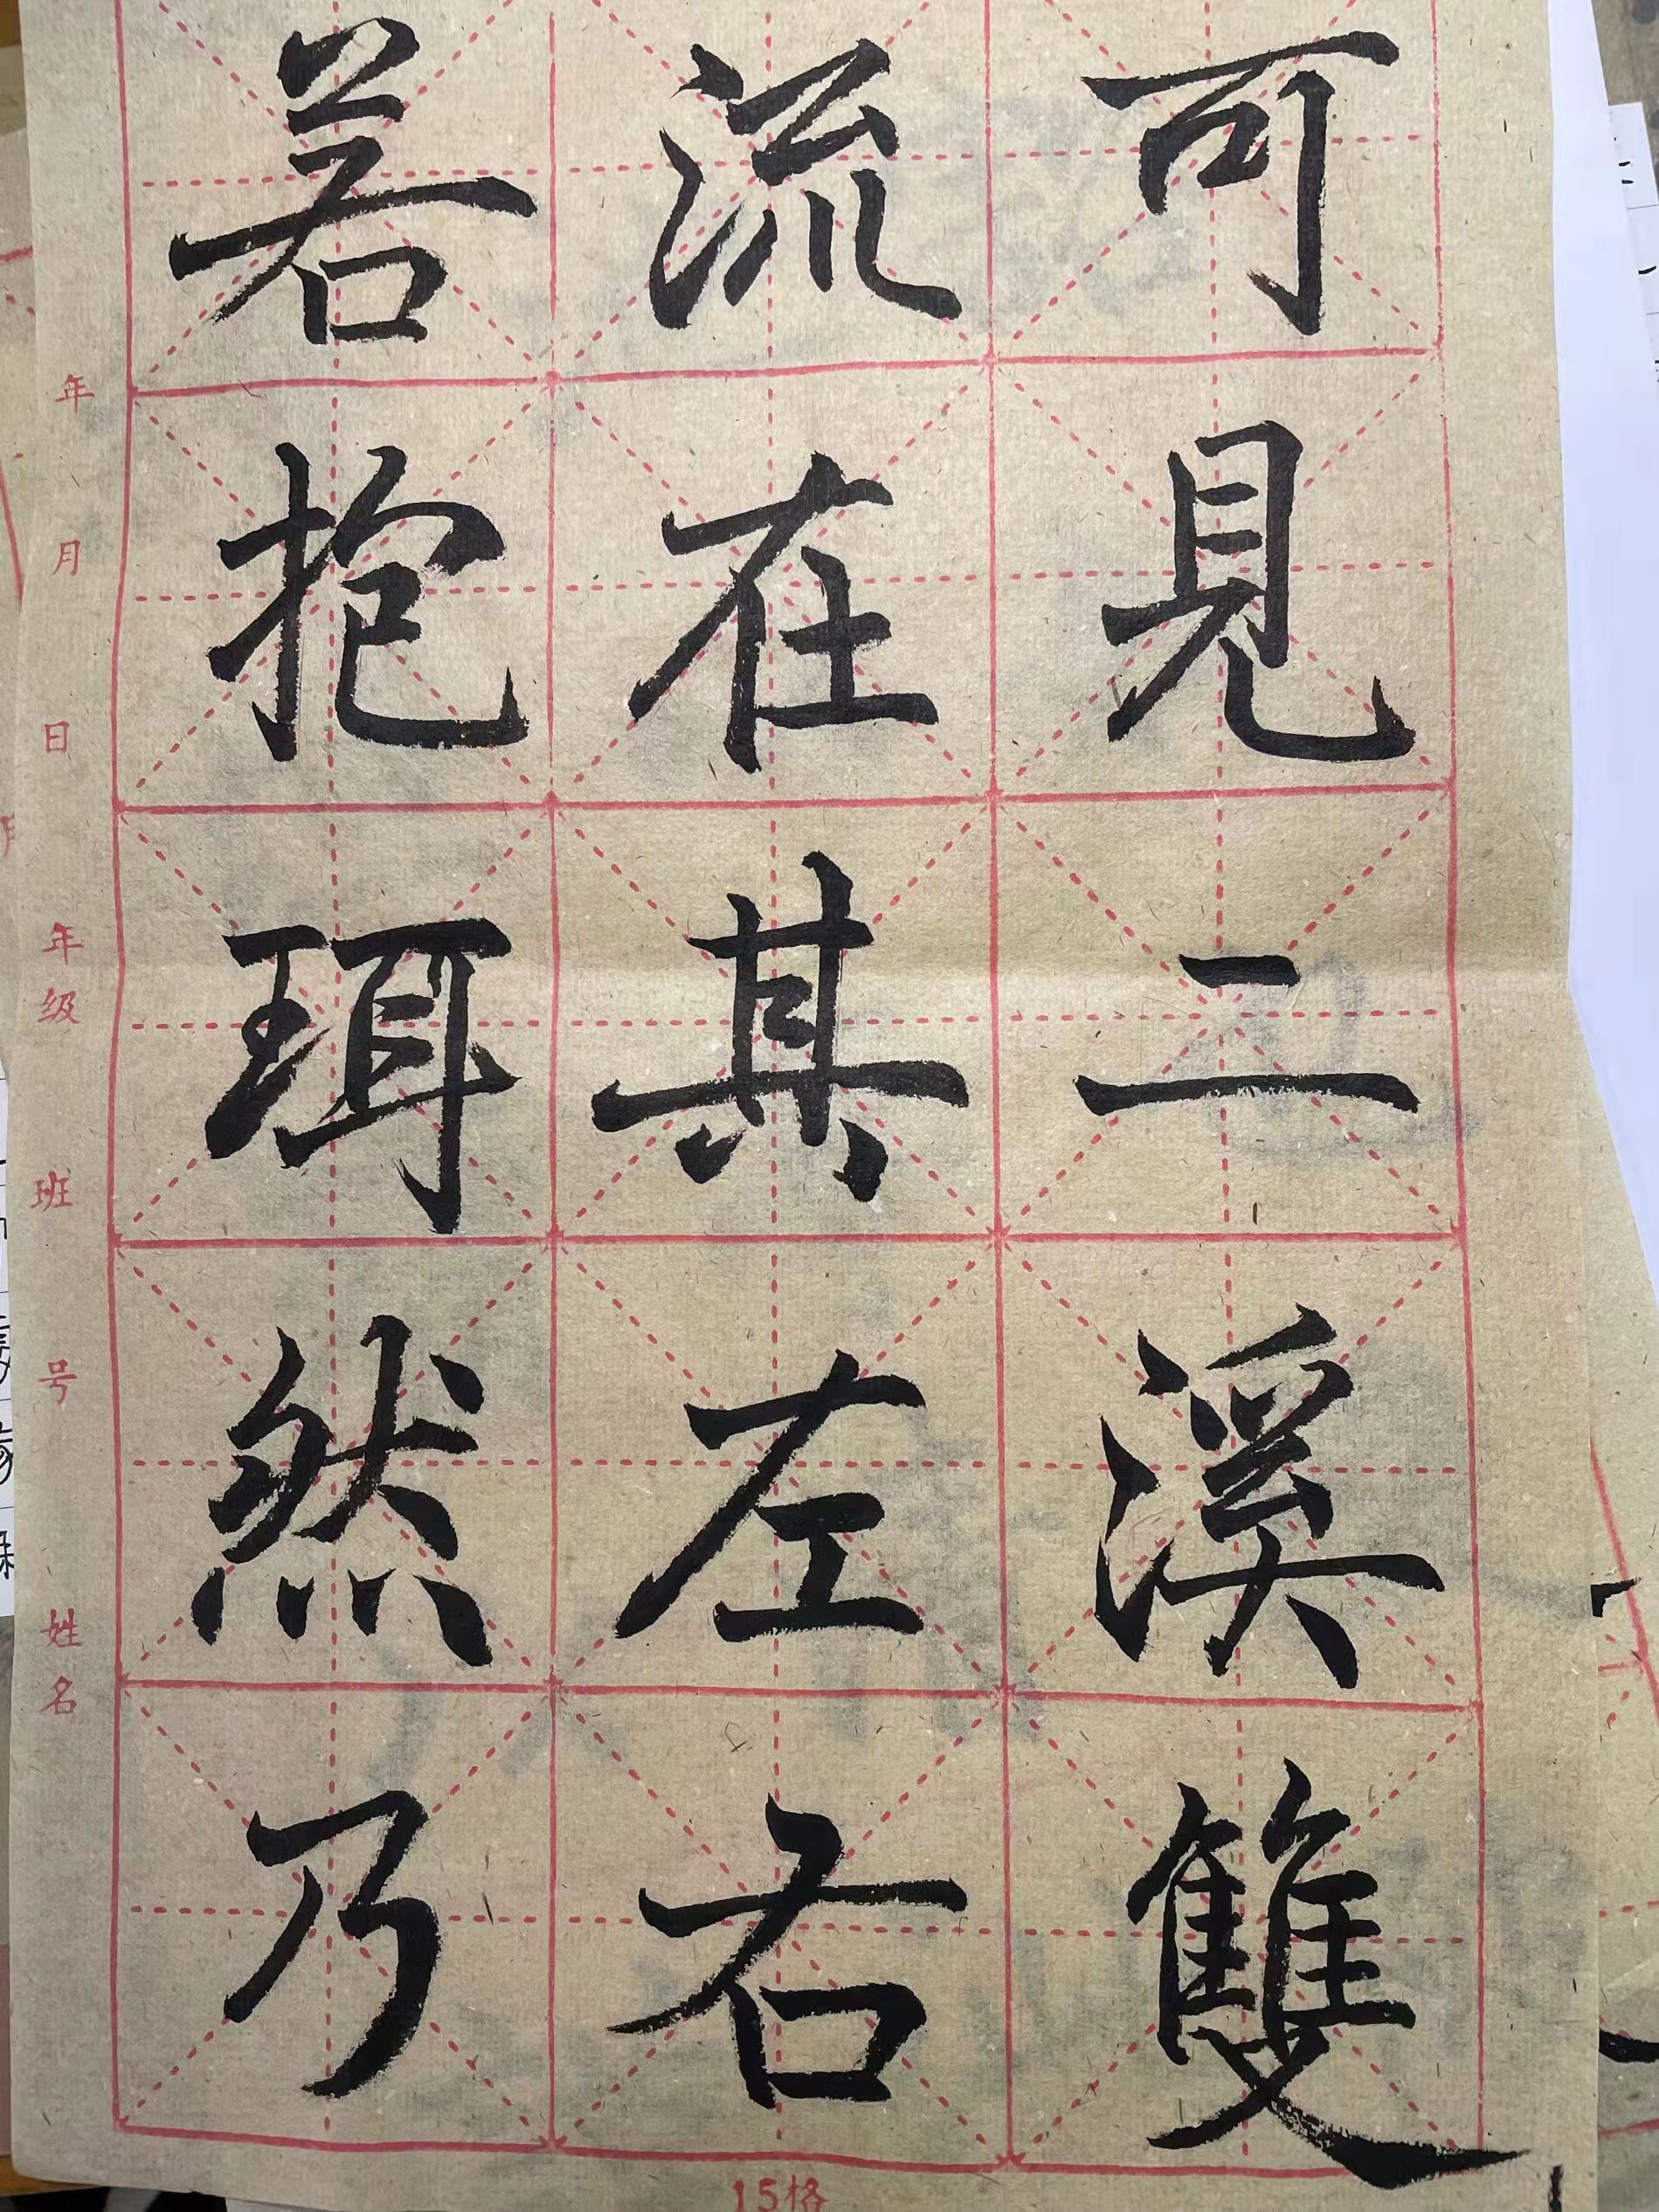 可見二溪雙
流在其左右
若抱珥然乃
年 月 日 年级 班 号 姓名
15格